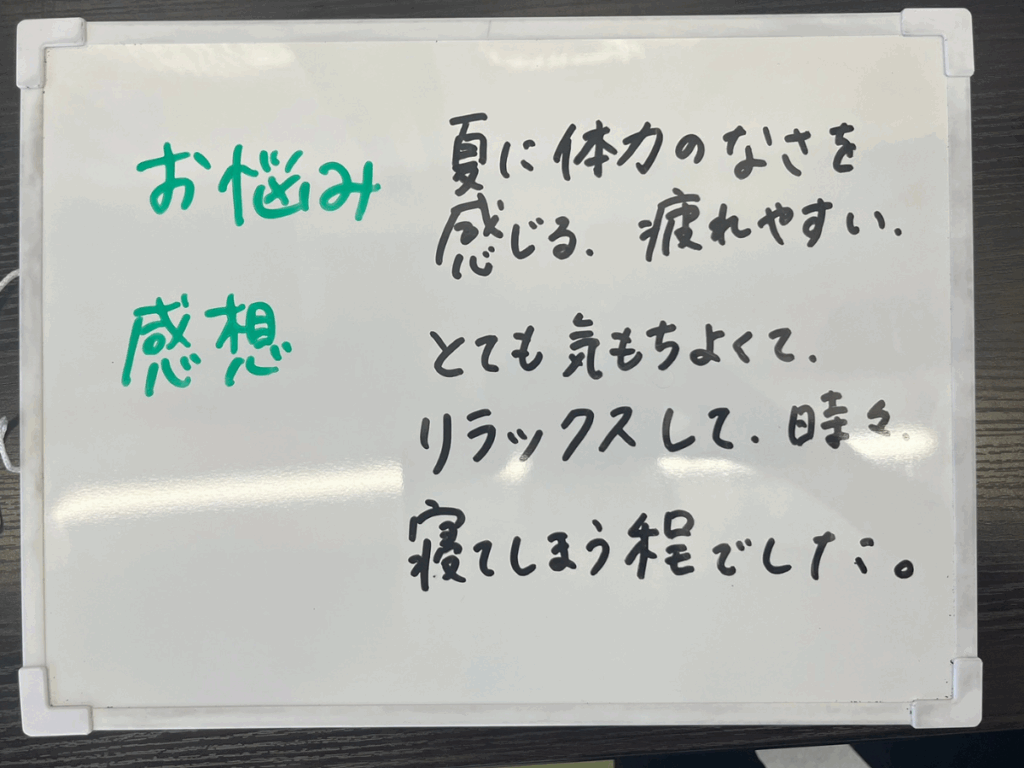 お悩み
夏に体力のなさを
感じる、疲れやすい、
感想
とても気もちよくて、
リラックスして、時々、
寝てしまう程でした。